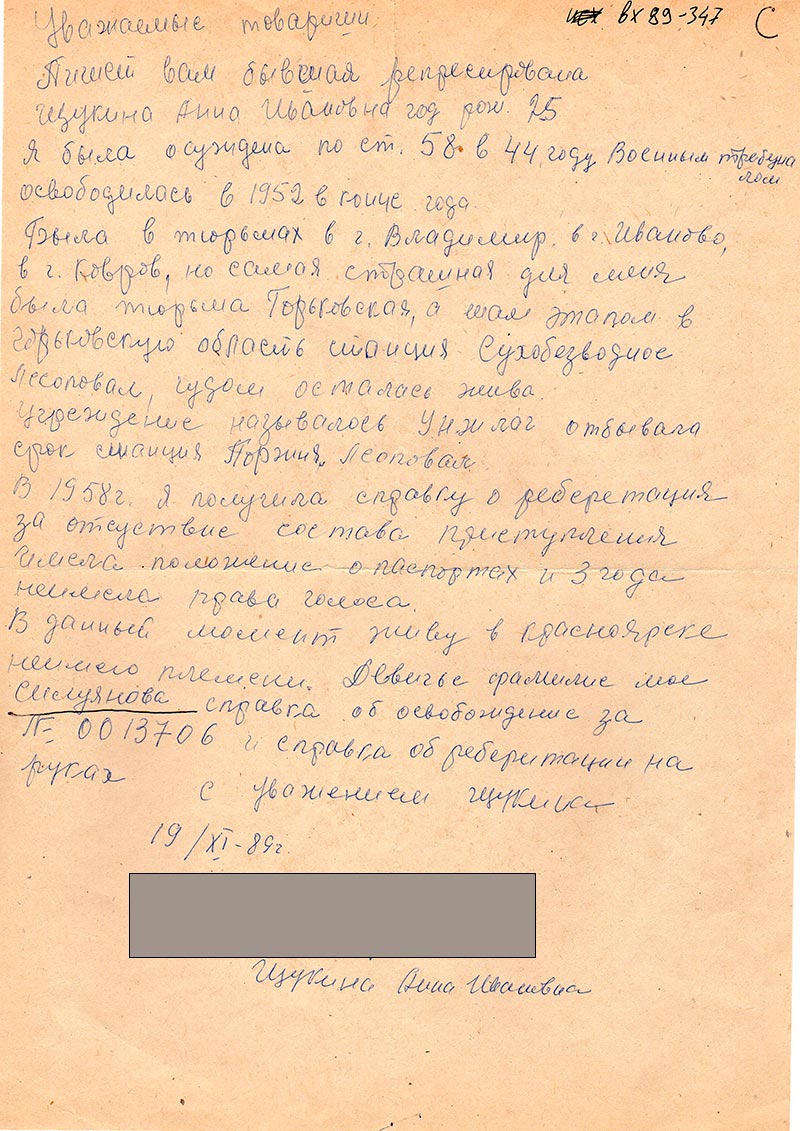 вх 89-347 С
Уважаемые товарищи.
Пишет вам бывшая репресирована
Щукина Анна Ивановна год рож. 25
Я была осуждена по ст. 58 в 44 году Военным требуна
лом
освободилась в 1952 в конце года.
Была в тюрьмах в г. Владимир. в г. Иваново,
в г. Ковров, но самая страшная для меня
была тюрьма Горьковская, а там этапом в
Горьковскую область станция Сухобезводное
Лесоповал, чудом осталась жива.
Учреждение называлось Унжлаг отбывала
срок станция Поржня. Лесоповал
В 1958г. я получила справку о реберетация
за отсуствие состава приступления
имела положение о паспортах и 3 года
неимела права голоса.
В данный момент живу в Красноярске
неимею племени. Девичье фамилие мое
Силуянова справка об освобождение за
№ 0013706 и справка об реберитации на
руках
с уважением Щукина
19/XI-89г.
Щукина Анна Ивановна